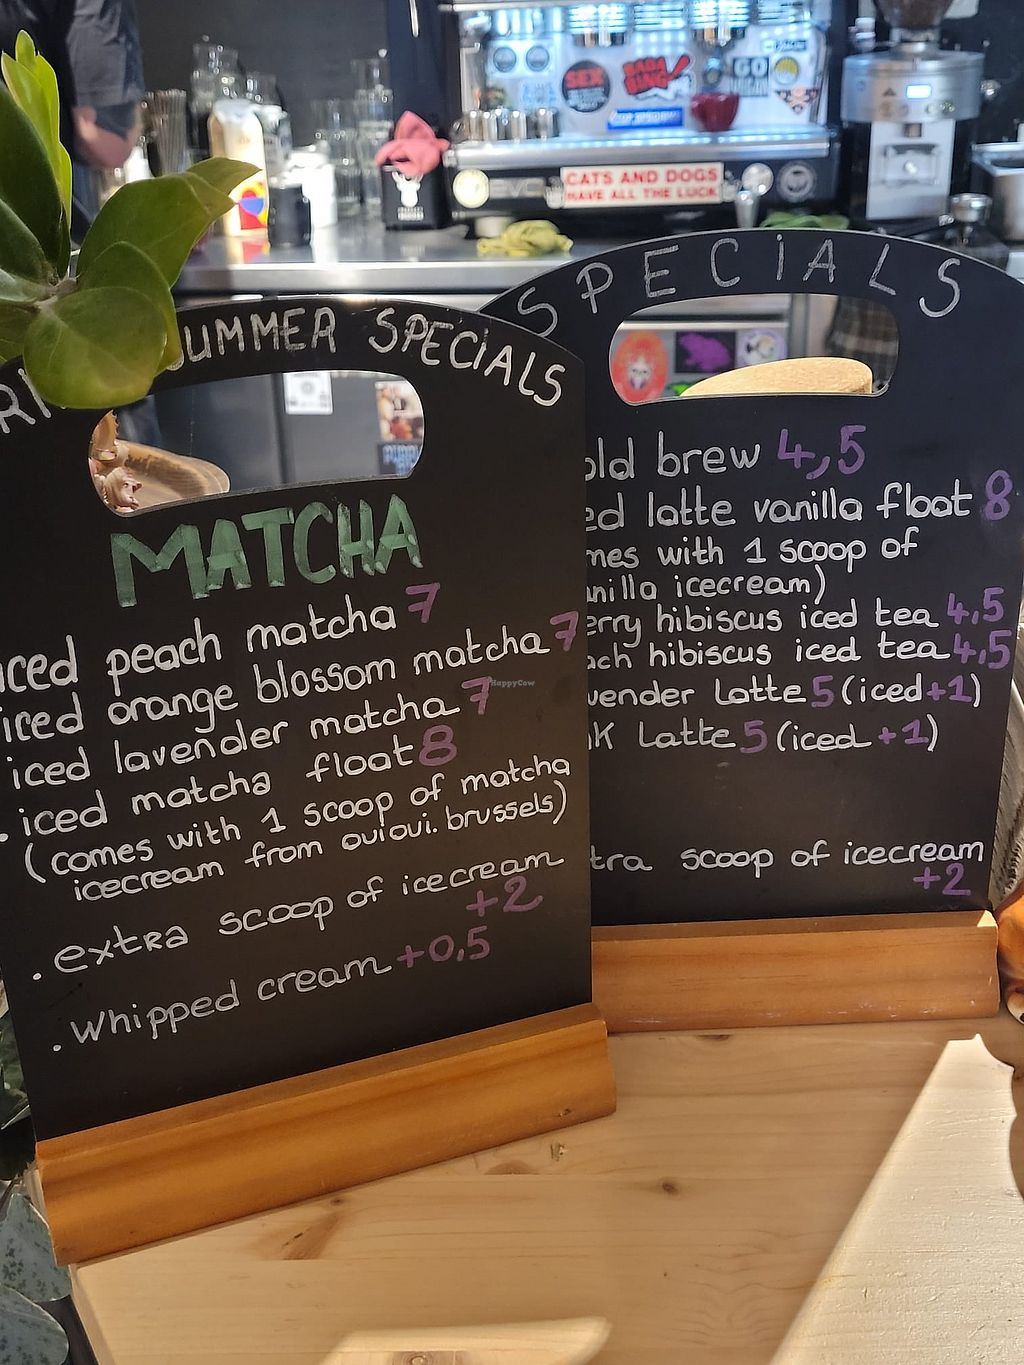 CATS AND DOGS
HAVE ALL THE LUCK
SUMMER SPECIALS
MATCHA
iced peach matcha 7
iced orange blossom matcha 7
iced lavender matcha 7
. iced matcha float 8
(comes with 1 scoop of matcha
icecream from ouioui.brussels)
. extra scoop of icecream
+2
. Whipped cream +0,5
HappyCow
SPECIALS
old brew 4,5
ed latte vanilla float 8
mes with 1 scoop of
anilla icecream)
erry hibiscus iced tea 4,5
ach hibiscus iced tea 4,5
vender Latte 5 (iced +1)
K Latte 5 (iced +1)
tra scoop of icecream
+2